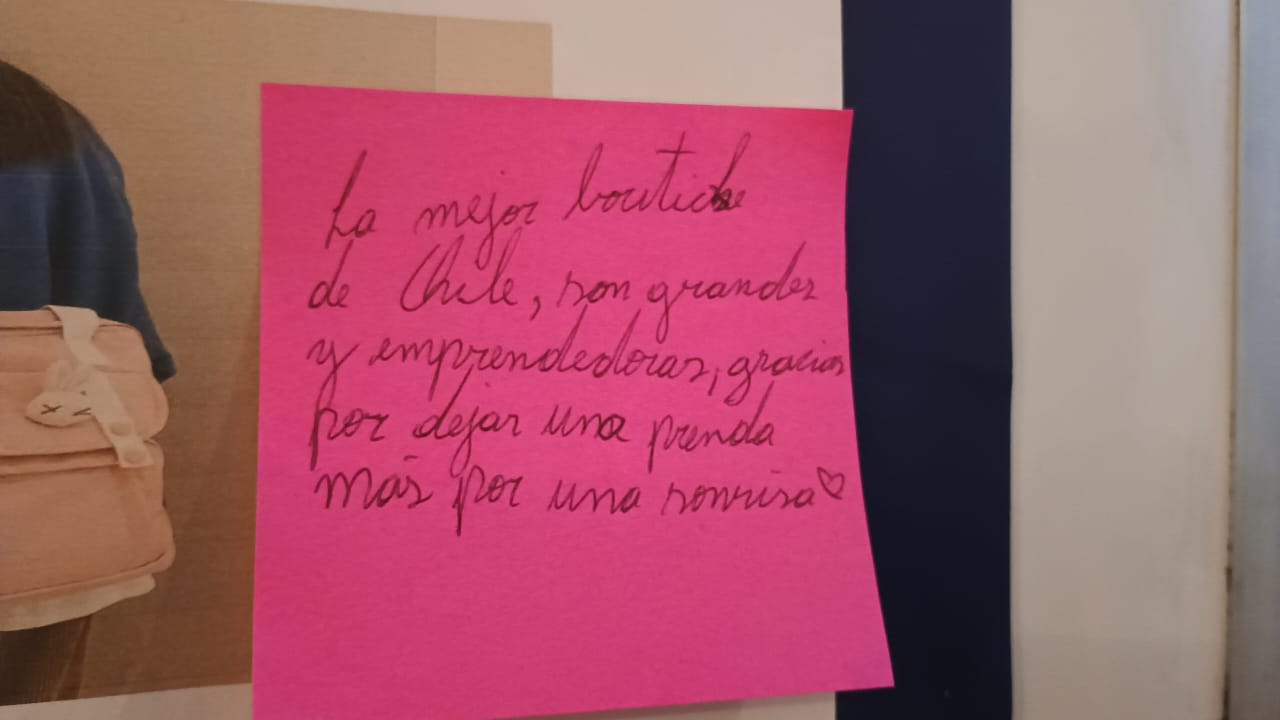 La mejor boutiche
de Chile, son grandes
y emprendedoras, gracias
por dejar una prenda
más por una sonrisa♡